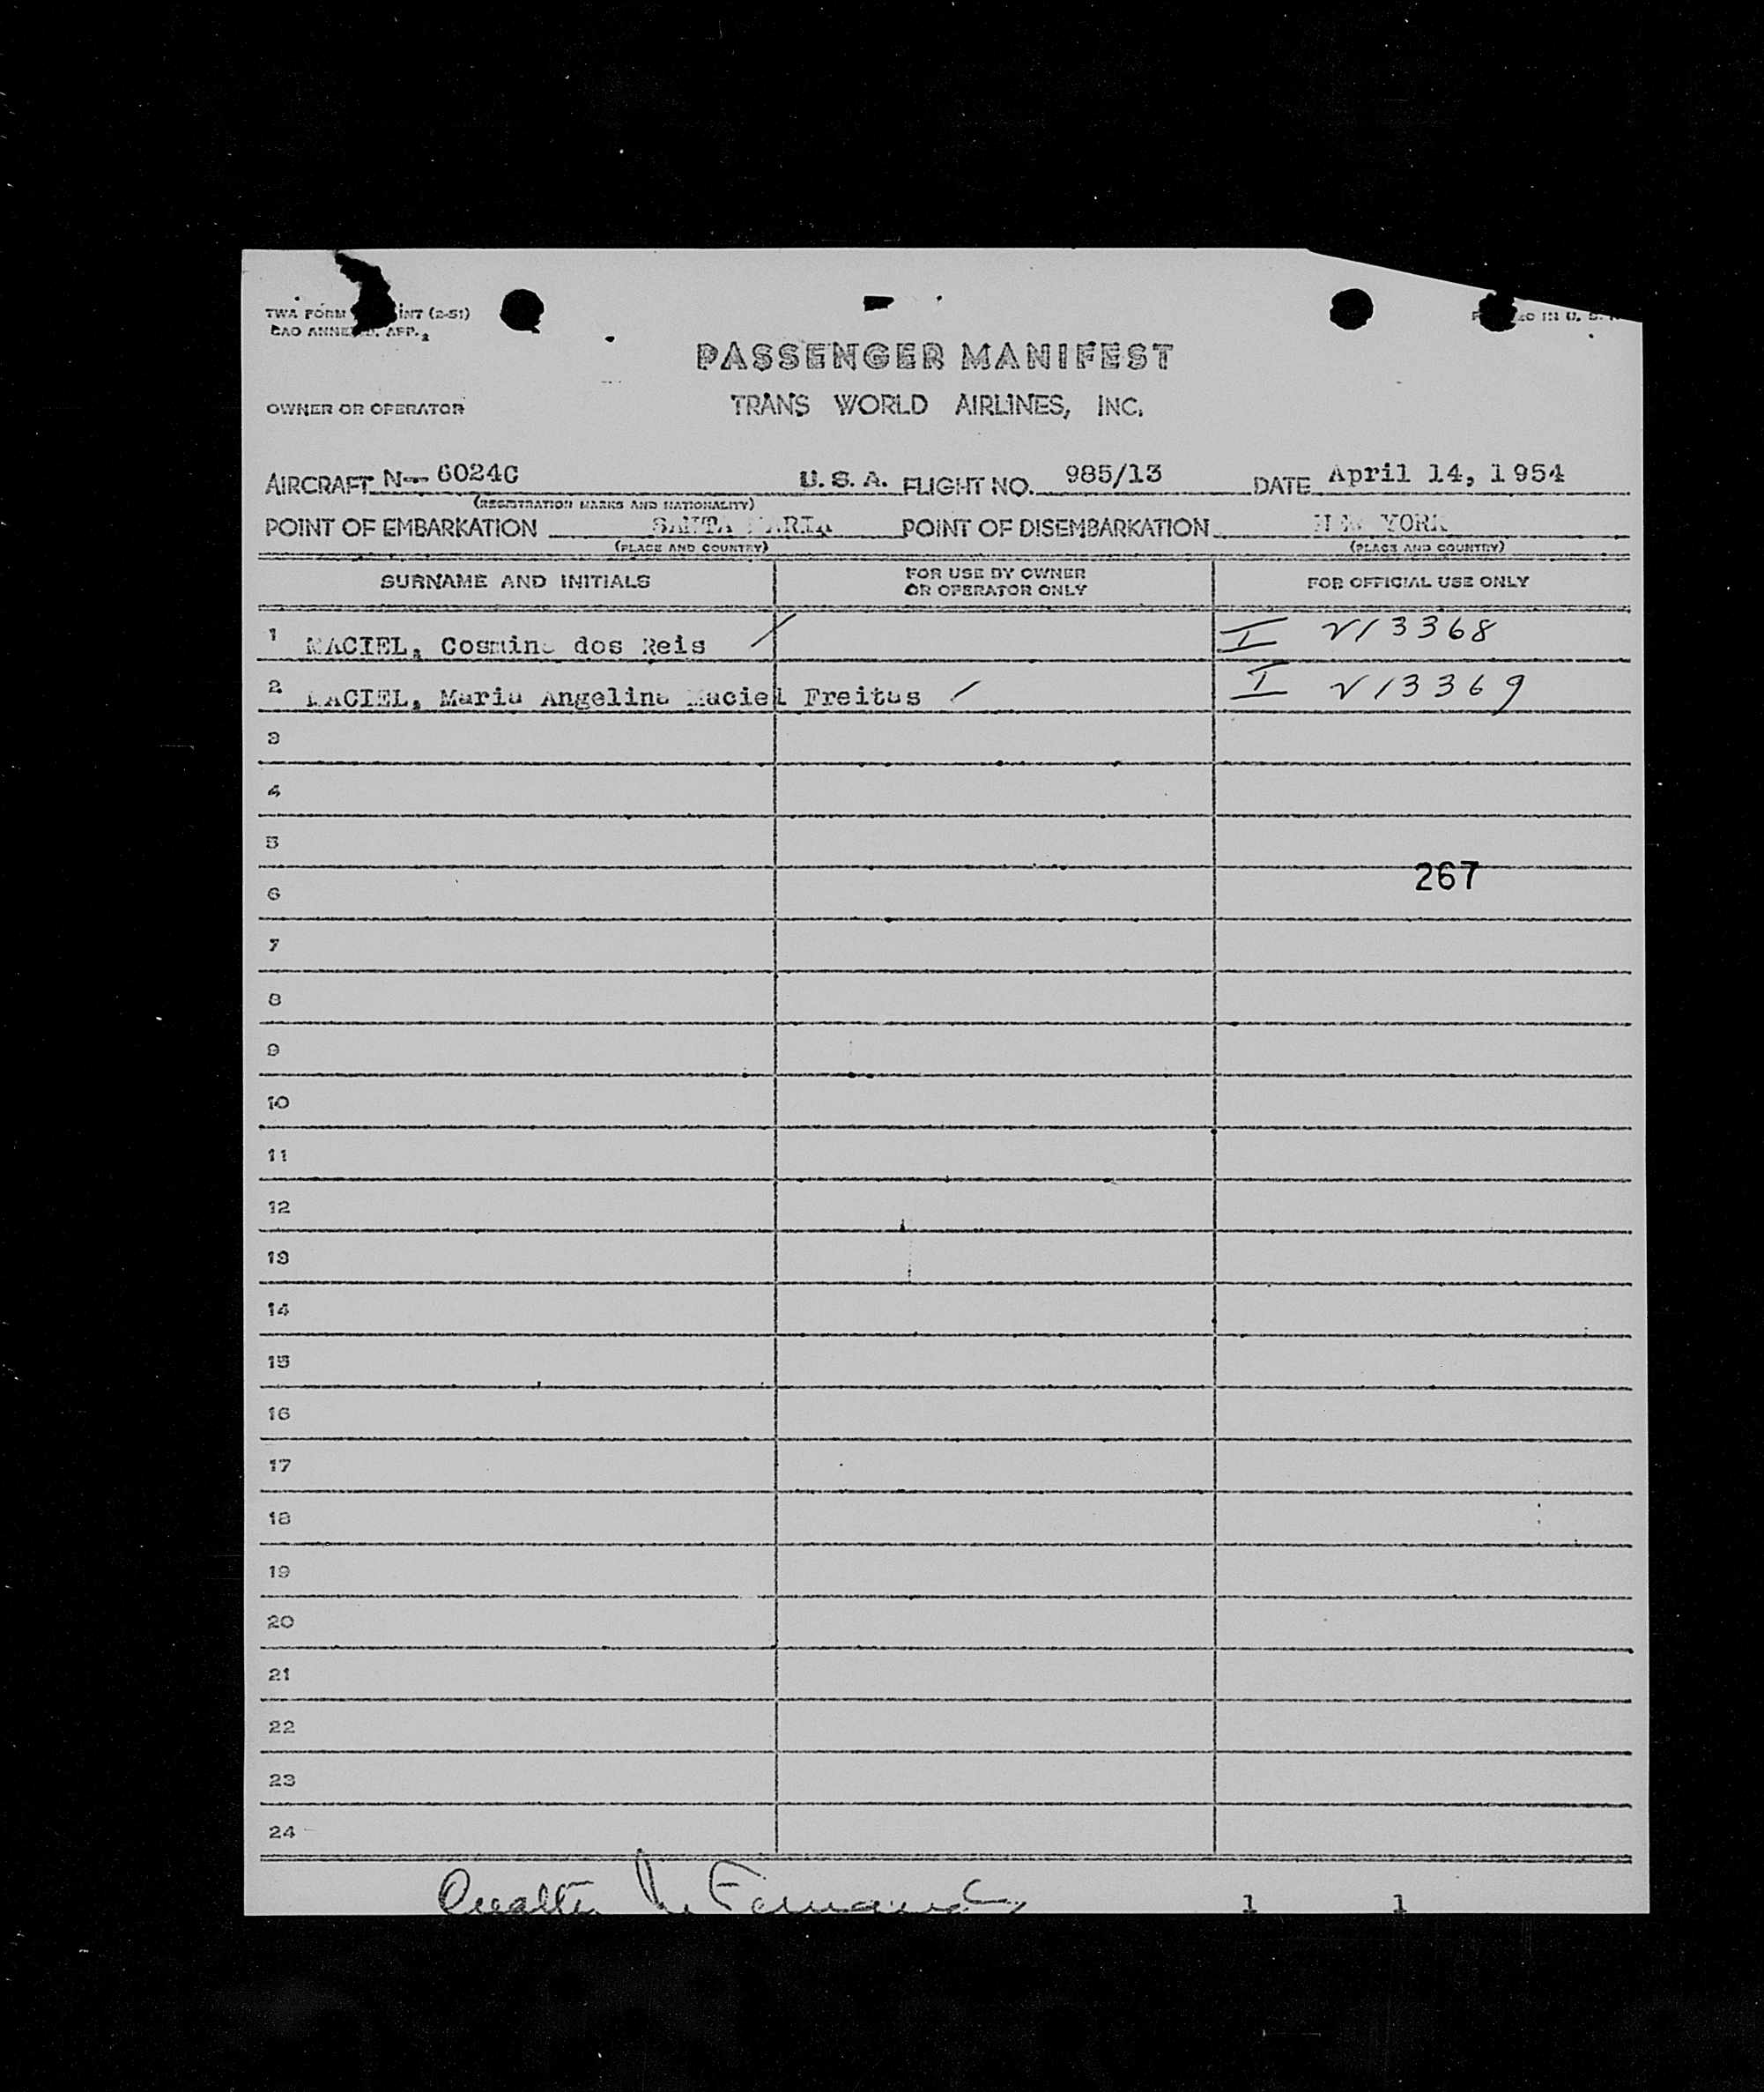 TWA FORM INT (2-51)
CAO ANNEX APP. 2
IN U. S.
PASSENGER MANIFEST
OWNER OR OPERATOR TRANS WORLD AIRLINES, INC.
AIRCRAFT N-- 6024C U. S. A. FLIGHT NO. 985/13 DATE April 14, 1954
(REGISTRATION MARKS AND NATIONALITY)
POINT OF EMBARKATION SANTA MARIA POINT OF DISEMBARKATION NEW YORK
(PLACE AND COUNTRY) (PLACE AND COUNTRY)
SURNAME AND INITIALS FOR USE BY OWNER OR OPERATOR ONLY FOR OFFICIAL USE ONLY
1 MACIEL, Cosmina dos Reis / I V13368
2 MACIEL, Maria Angelina Maciel Freitas / I V13369
3
4
5
267
6
7
8
9
10
11
12
13
14
15
16
17
18
19
20
21
22
23
24
1 1